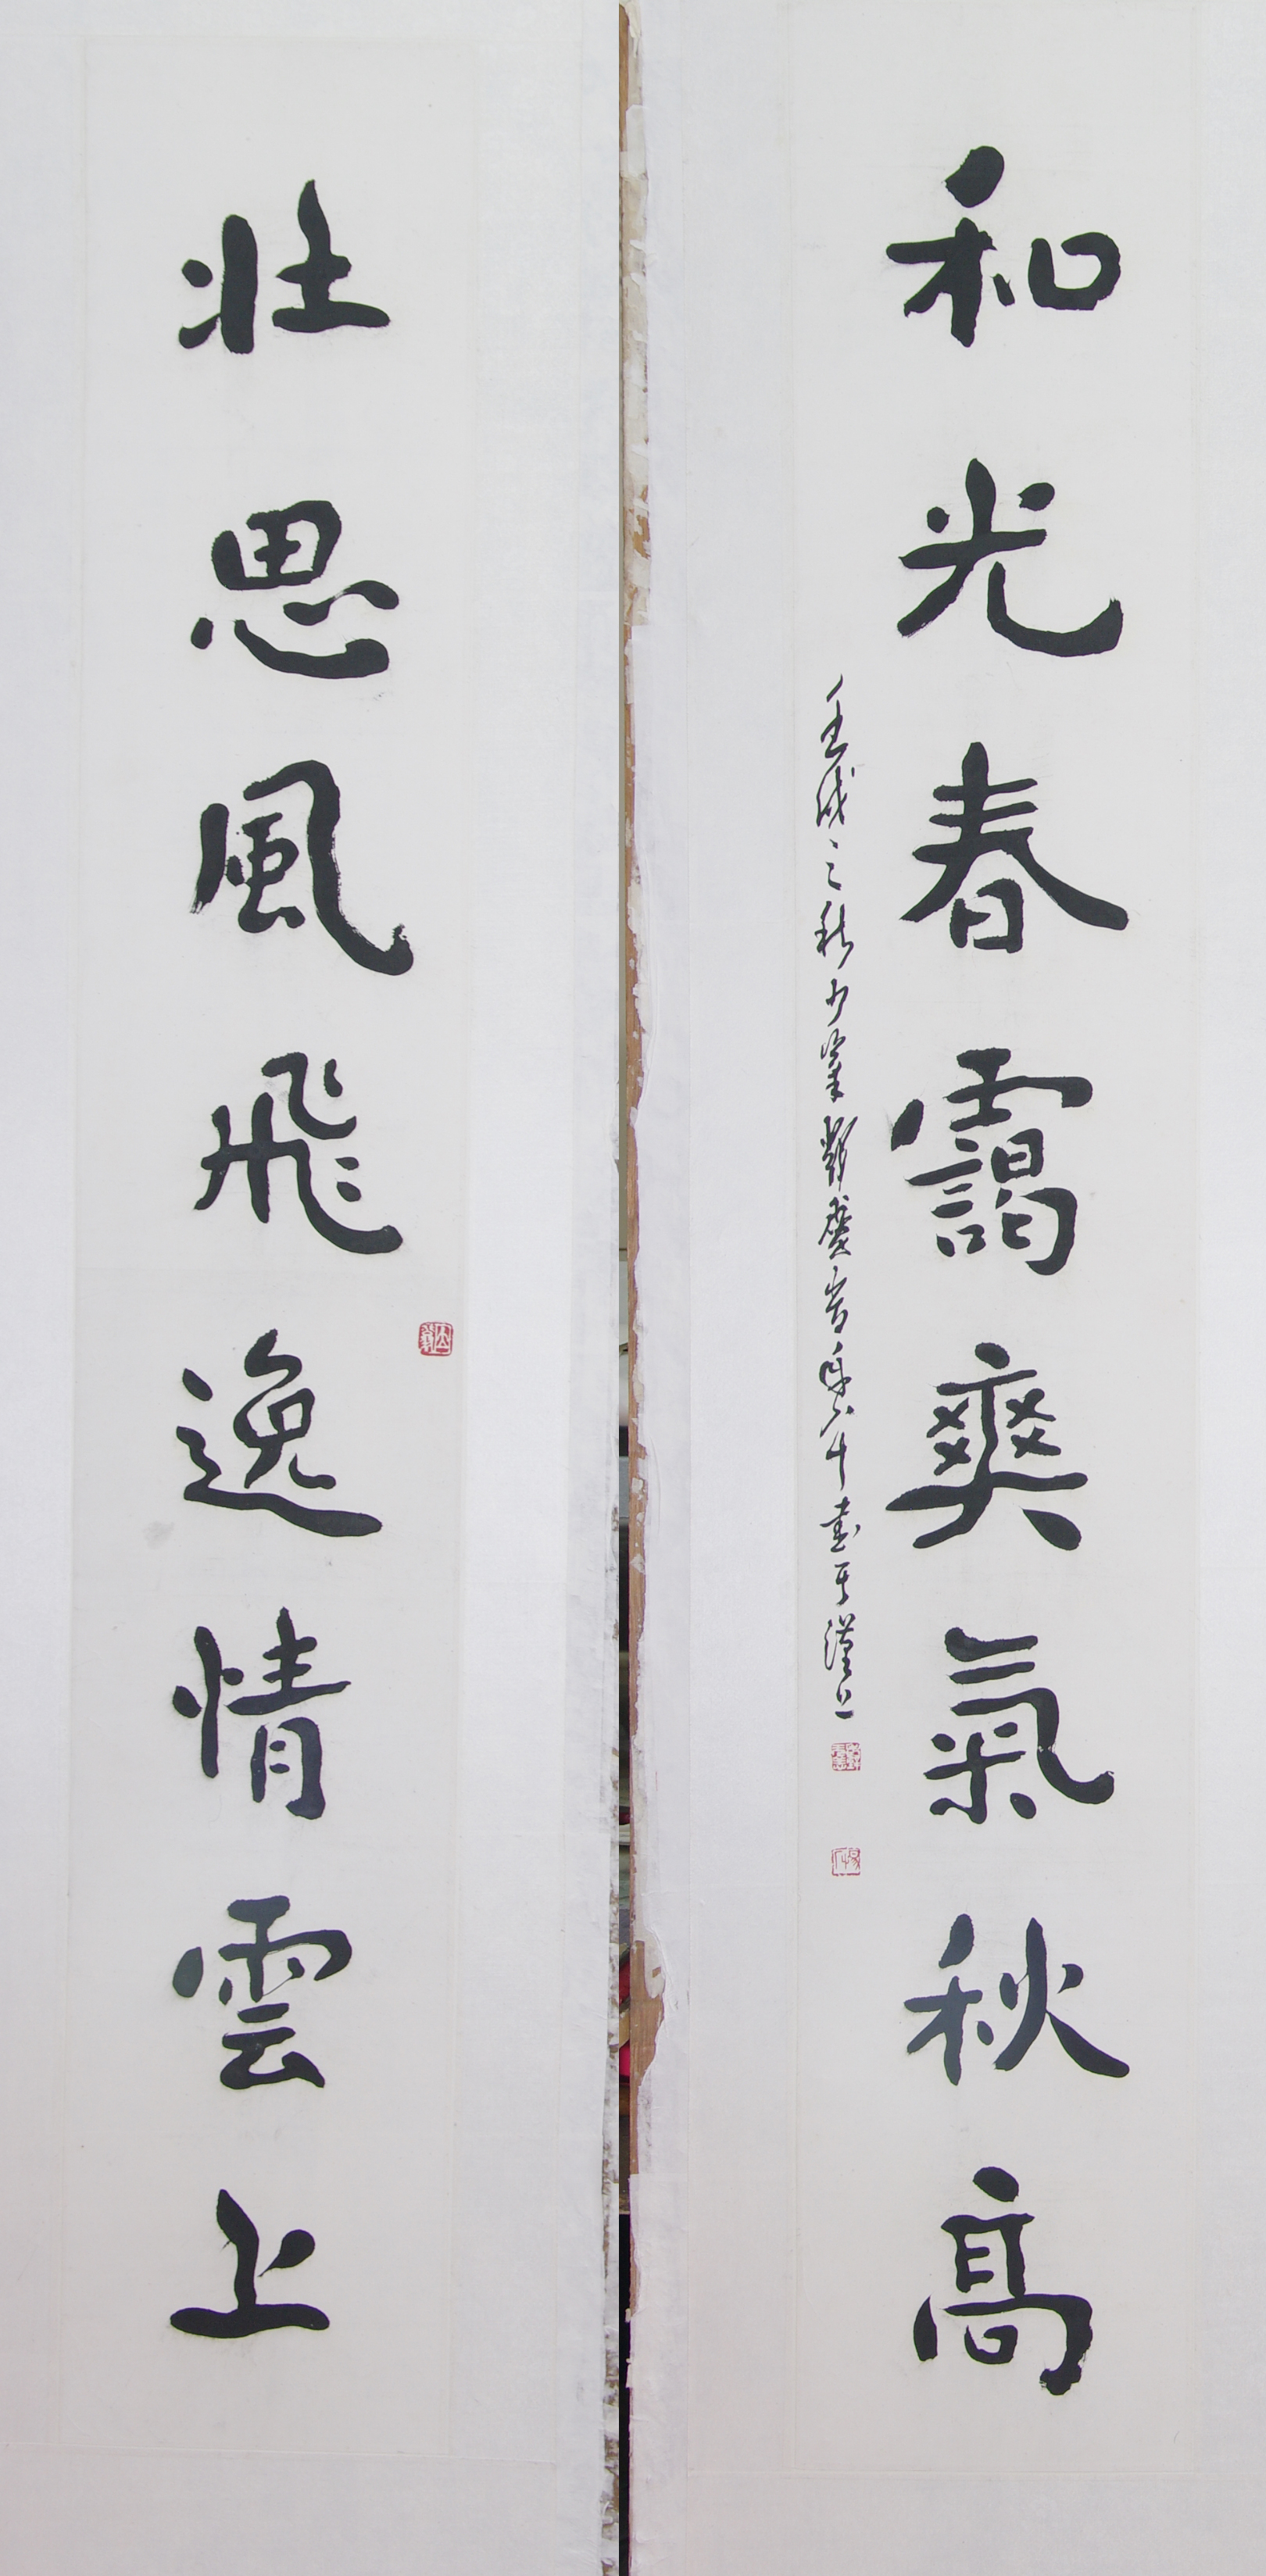 和光春靄爽氣秋高
壬戌之秋 書于漢上
壯思風飛逸情雲上